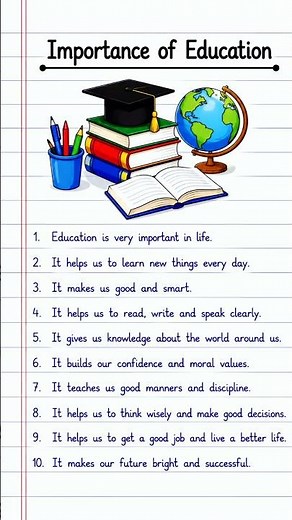 Importance of Education
1. Education is very important in life.
2. It helps us to learn new things every day.
3. It makes us good and smart.
4. It helps us to read, write and speak clearly.
5. It gives us knowledge about the world around us.
6. It builds our confidence and moral values.
7. It teaches us good manners and discipline.
8. It helps us to think wisely and make good decisions.
9. It helps us to get a good job and live a better life.
10. It makes our future bright and successful.